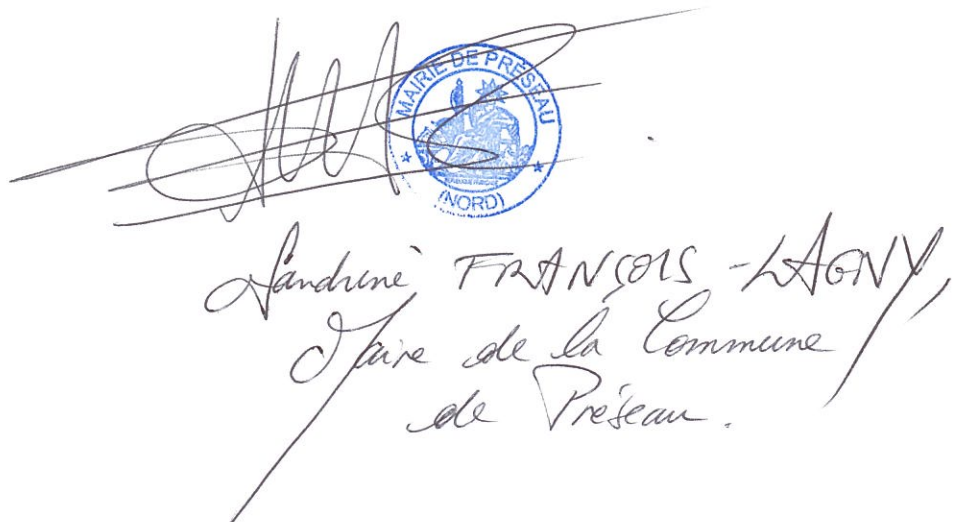 MAIRIE DE PRÉSEAU
(NORD)
Sandrine FRANÇOIS-LAGNY,
Maire de la Commune
de Préseau.